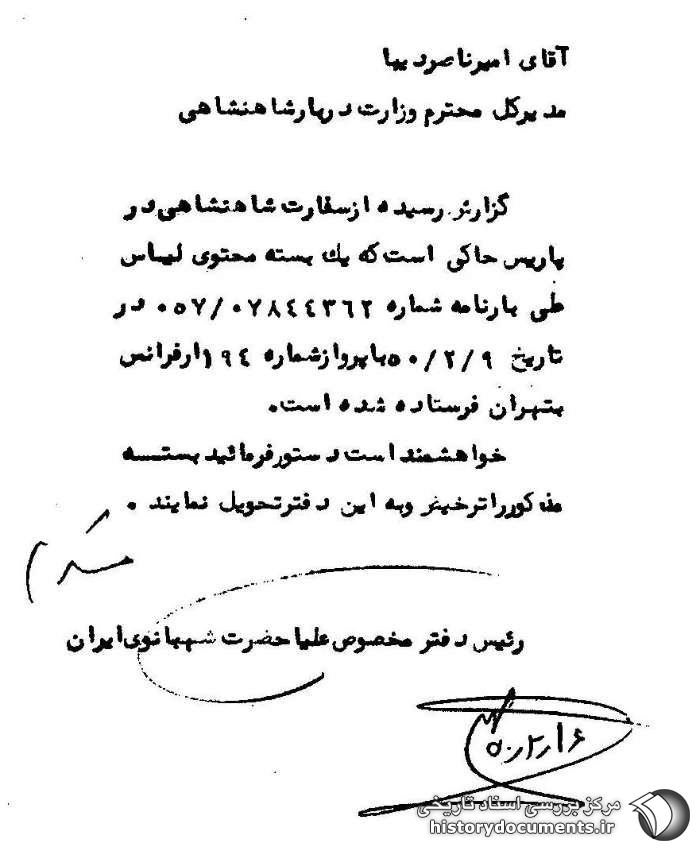 آقای امیرناصردیبا
مدیرکل محترم وزارت دربارشاهنشاهی
گزارش رسیده ازسفارت شاهنشاهی در
پاریس حاکی است که یک بسته محتوی لباس
طی بارنامه شماره ۰۵۷/۰۷۸۴۴۳۶۲ در
تاریخ ۵۰/۲/۹ باپروازشماره ۱۹۴ ارفرانس
بتهران فرستاده شده است.
خواهشمند است دستورفرمائید بسته
مذکورراترخیص وبه این دفترتحویل نمایند .
رئیس دفتر مخصوص علیاحضرت شهبانوی ایران
۵۰/۲/۱۶
مرکز بررسی اسناد تاریخی
historydocuments.ir